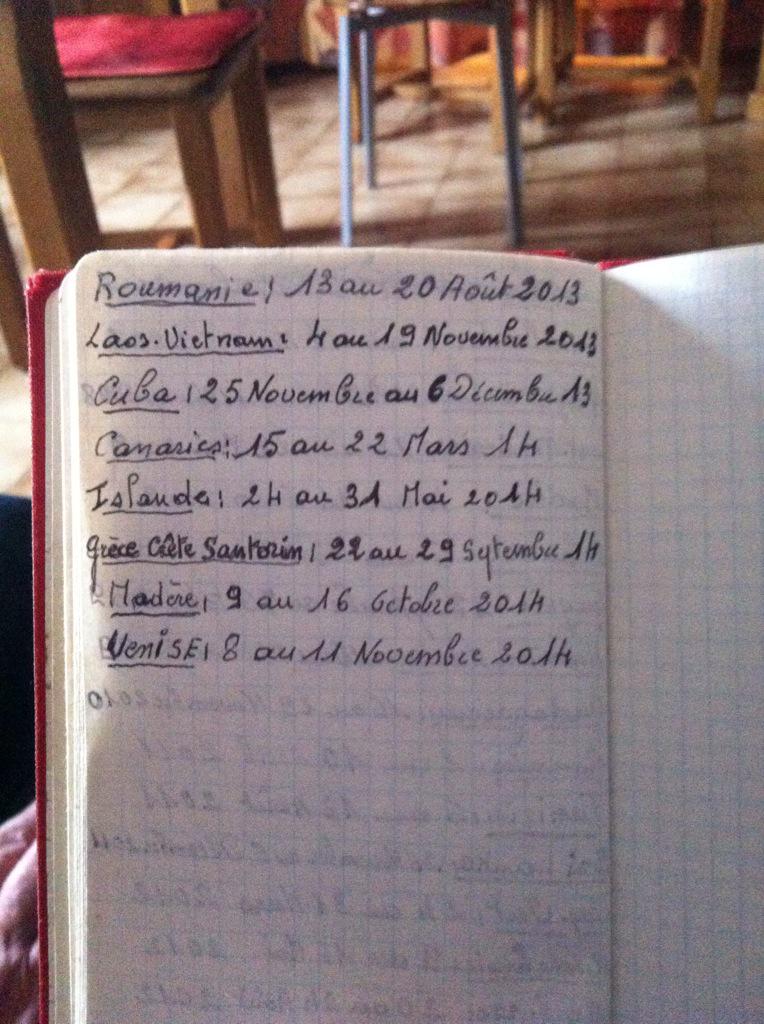 Roumanie: 13 au 20 Août 2013
Laos-Vietnam: 4 au 19 Novembre 2013
Cuba: 25 Novembre au 6 Décembre 13
Canaries: 15 au 22 Mars 14
Islande: 24 au 31 Mai 2014
Grèce Crête Santorin: 22 au 29 Septembre 14
Madère: 9 au 16 Octobre 2014
VeniSE: 8 au 11 Novembre 2014